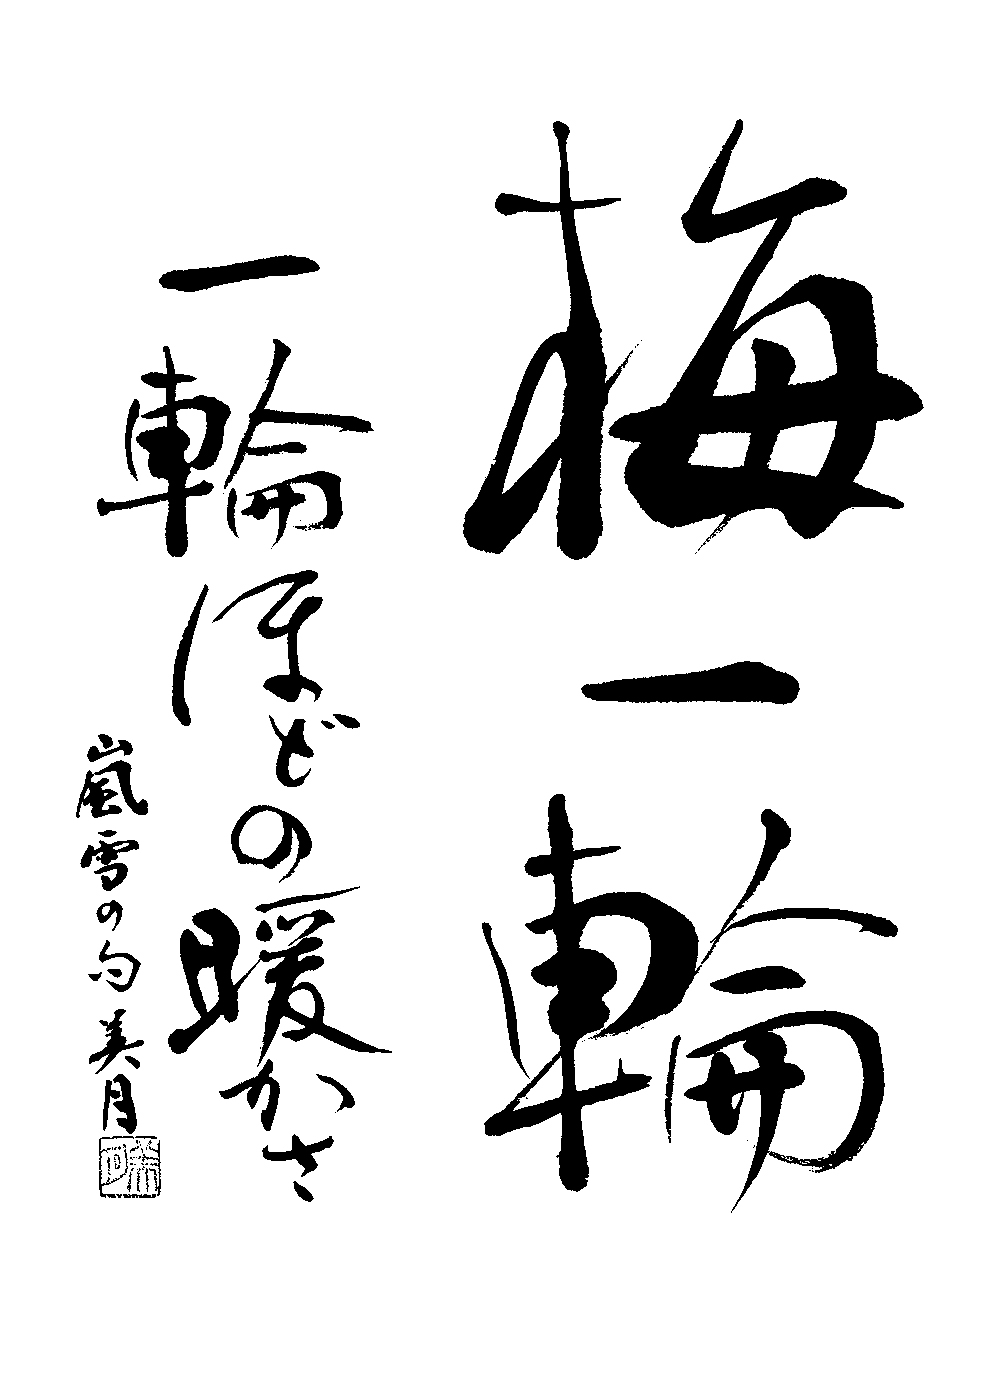 梅一輪
一輪ほどの暖かさ
嵐雪の句 美月